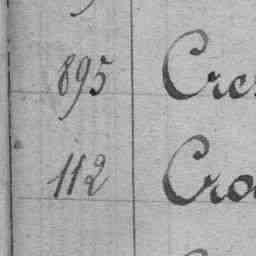 895 Cres
112 Cro